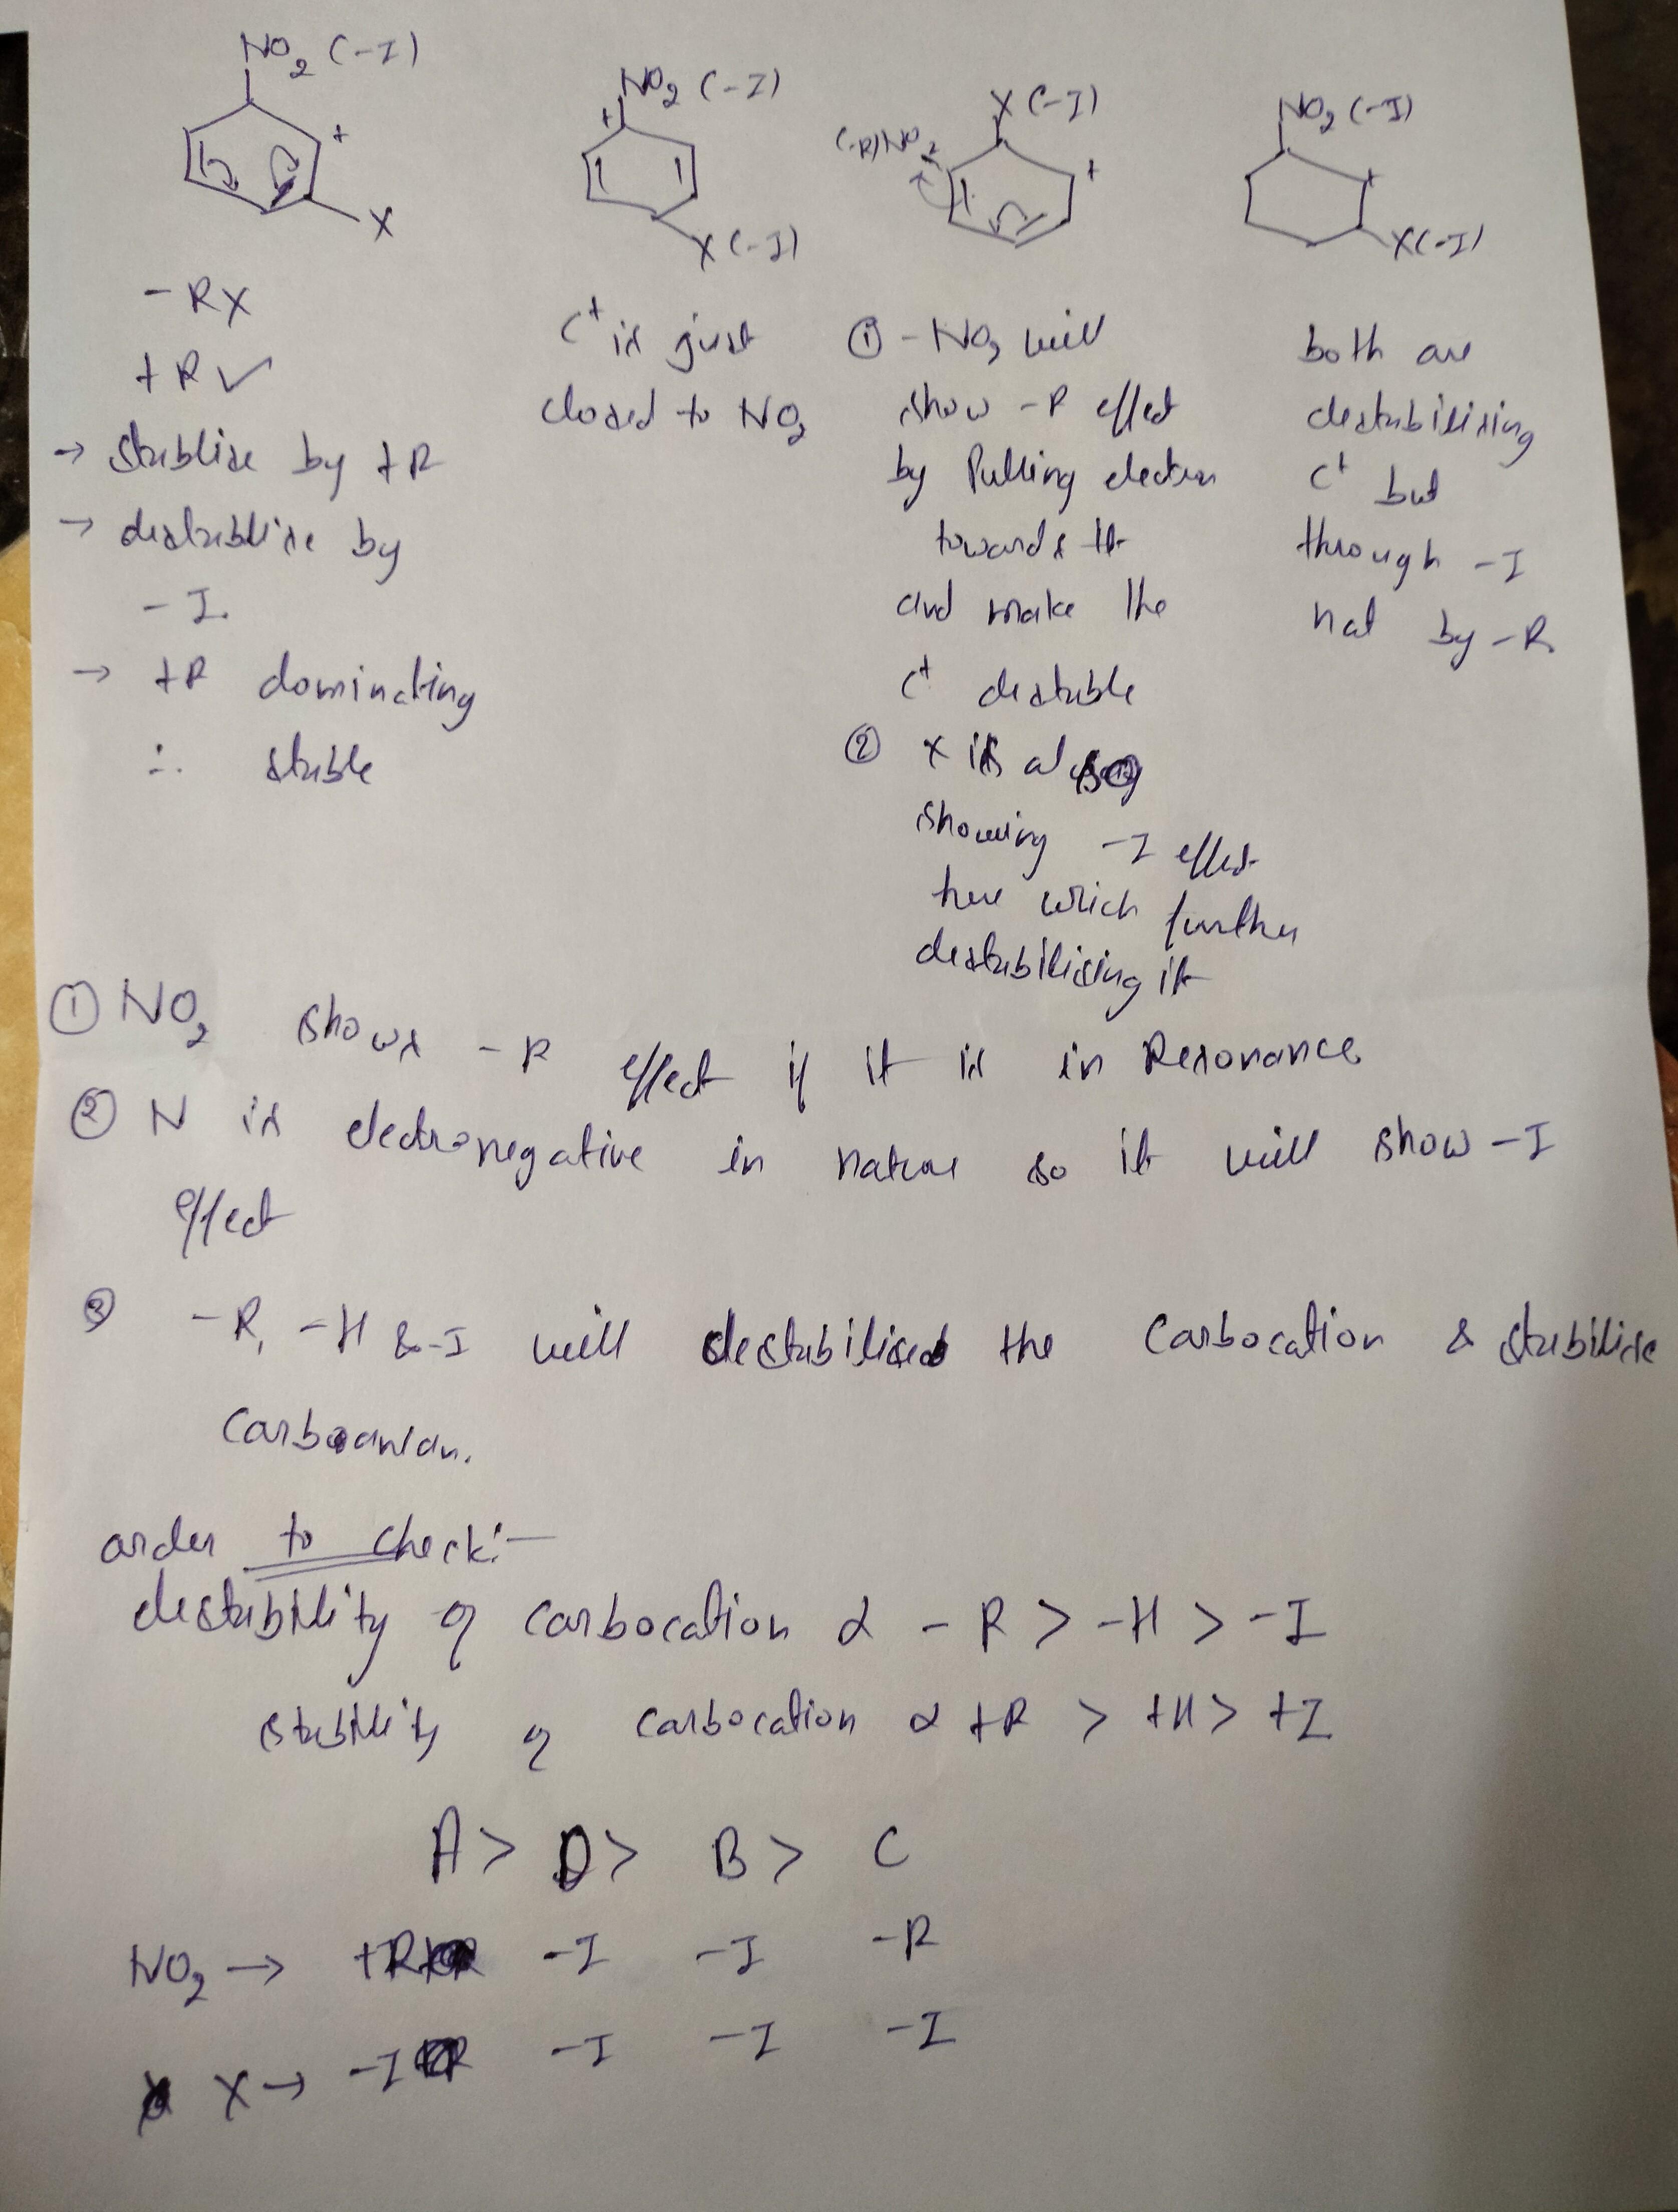 NO2 (-I)
+
X
NO2 (-I)
+
X (-I)
X (-I)
(-R) NO2
+
NO2 (-I)
+
X (-I)
- R X
+ R ✓
→ stablise by +R
→ destablise by
- I.
→ +R dominating
∴ stable
C+ is just
closed to NO2
① - NO2 will
show -R effect
by Pulling electron
towards it
and make the
C+ destable
② X is also
showing -I effect
here which further
destabilising it
both are
destabilising
C+ but
through -I
not by -R
① NO2 shows - R effect if it is in Resonance
② N is electronegative in nature so it will show -I
effect
③ -R, -H & -I will destabilised the Carbocation & stabilise
Carboanion.
order to check:-
destability of carbocation α - R > -H > -I
stability of carbocation α +R > +H > +I
A > D > B > C
NO2 → +R -I -I -R
X → -I -I -I -I